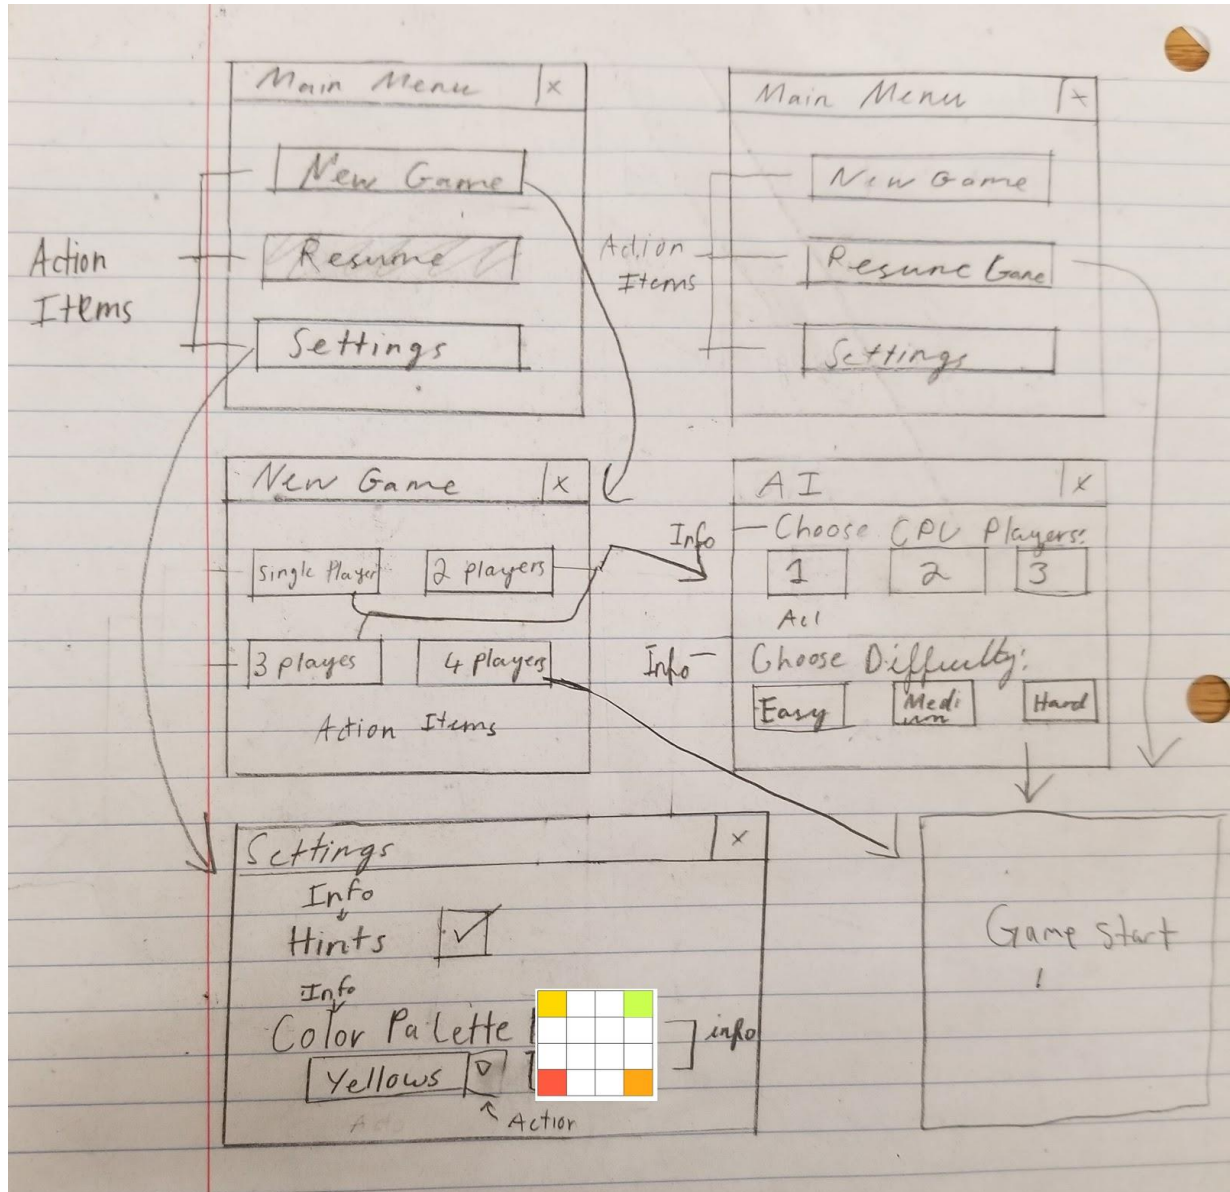 Main Menu x
New Game
Resume
Settings
Action
Items
Main Menu x
New Game
Resume Game
Settings
Action
Items
New Game x
Single Player 2 players
3 playes 4 players
Action Items
AI x
Info Choose CPU Players:
1 2 3
Act
Info Choose Difficulty:
Easy Medi Hard
um
Settings x
Info
Hints
Info
Color Palette info
Yellows
Action
Game Start